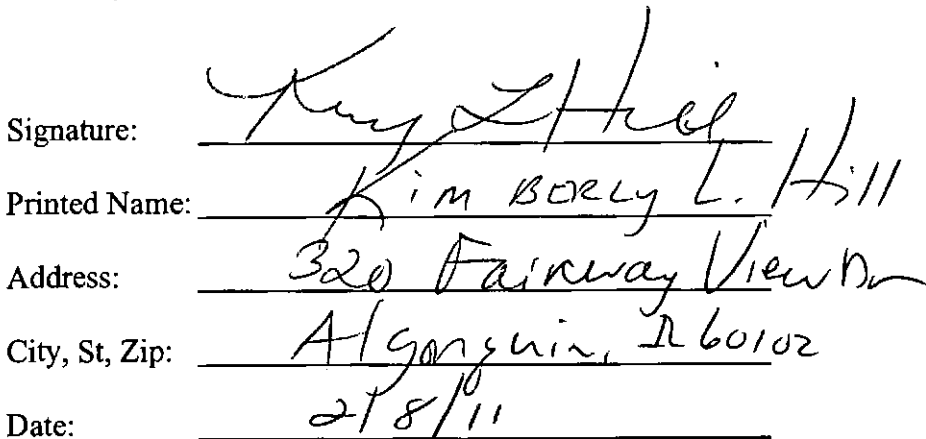 Signature: L Hill
Printed Name: Kim BERLY L. Hill
Address: 320 Fairway View Dr
City, St, Zip: Algonquin, IL 60102
Date: 2/8/11